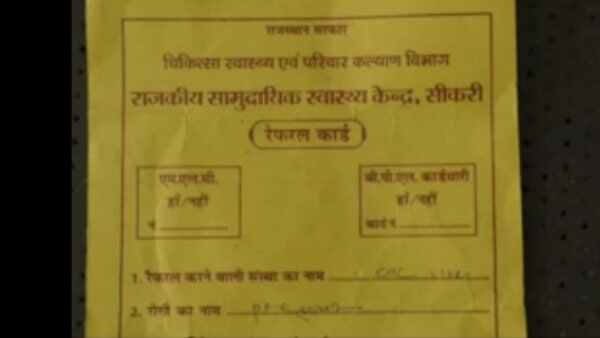 राजस्थान सरकार
चिकित्सा स्वास्थ्य एवं परिवार कल्याण विभाग
राजकीय सामुदायिक स्वास्थ्य केन्द्र, सीकरी
रेफरल कार्ड
एम.एल.सी. बी.पी.एल. कार्डधारी
हां/नहीं हां/नहीं
नं कार्ड नं
1. रैफरल करने वाली संस्था का नाम
2. रोगी का नाम